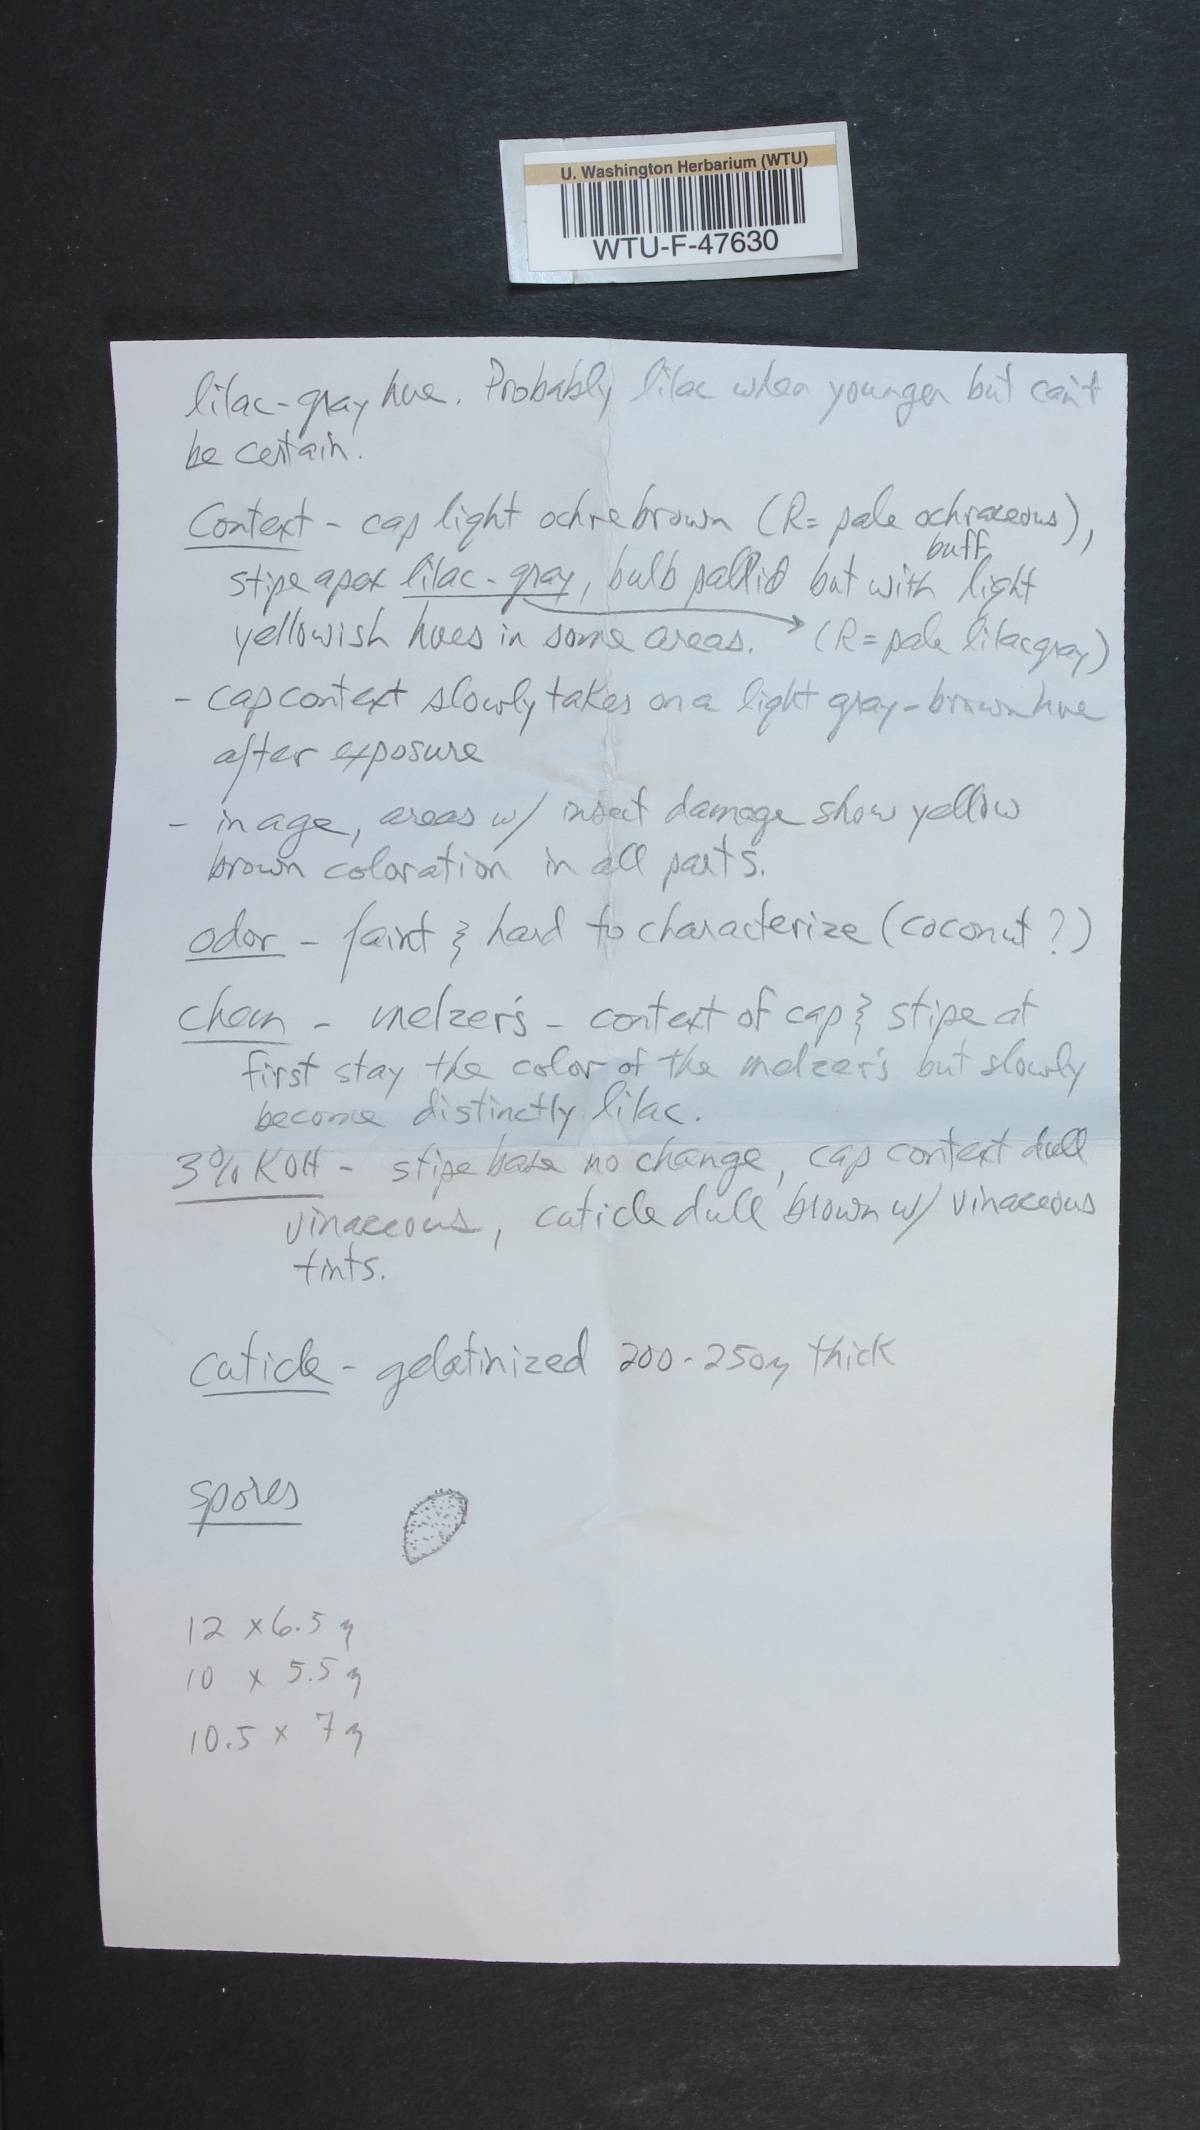 U. Washington Herbarium (WTU)
WTU-F-47630
lilac-gray hue. Probably lilac when younger but can't
be certain.
Context - cap light ochre brown (R= pale ochraceous),
buff
stipe apex lilac-gray, bulb pallid but with light
yellowish hues in some areas. (R= pale lilac gray)
- cap context slowly takes on a light gray-brown hue
after exposure
- in age, areas w/ insect damage show yellow
brown coloration in all parts.
odor - faint & hard to characterize (coconut?)
chem - melzer's - context of cap & stipe at
first stay the color of the melzer's but slowly
become distinctly lilac.
3% KOH - stipe base no change, cap context dull
vinaceous, cuticle dull brown w/ vinaceous
tints.
cuticle - gelatinized 200-250 μ thick
spores
12 x 6.5 μ
10 x 5.5 μ
10.5 x 7 μ